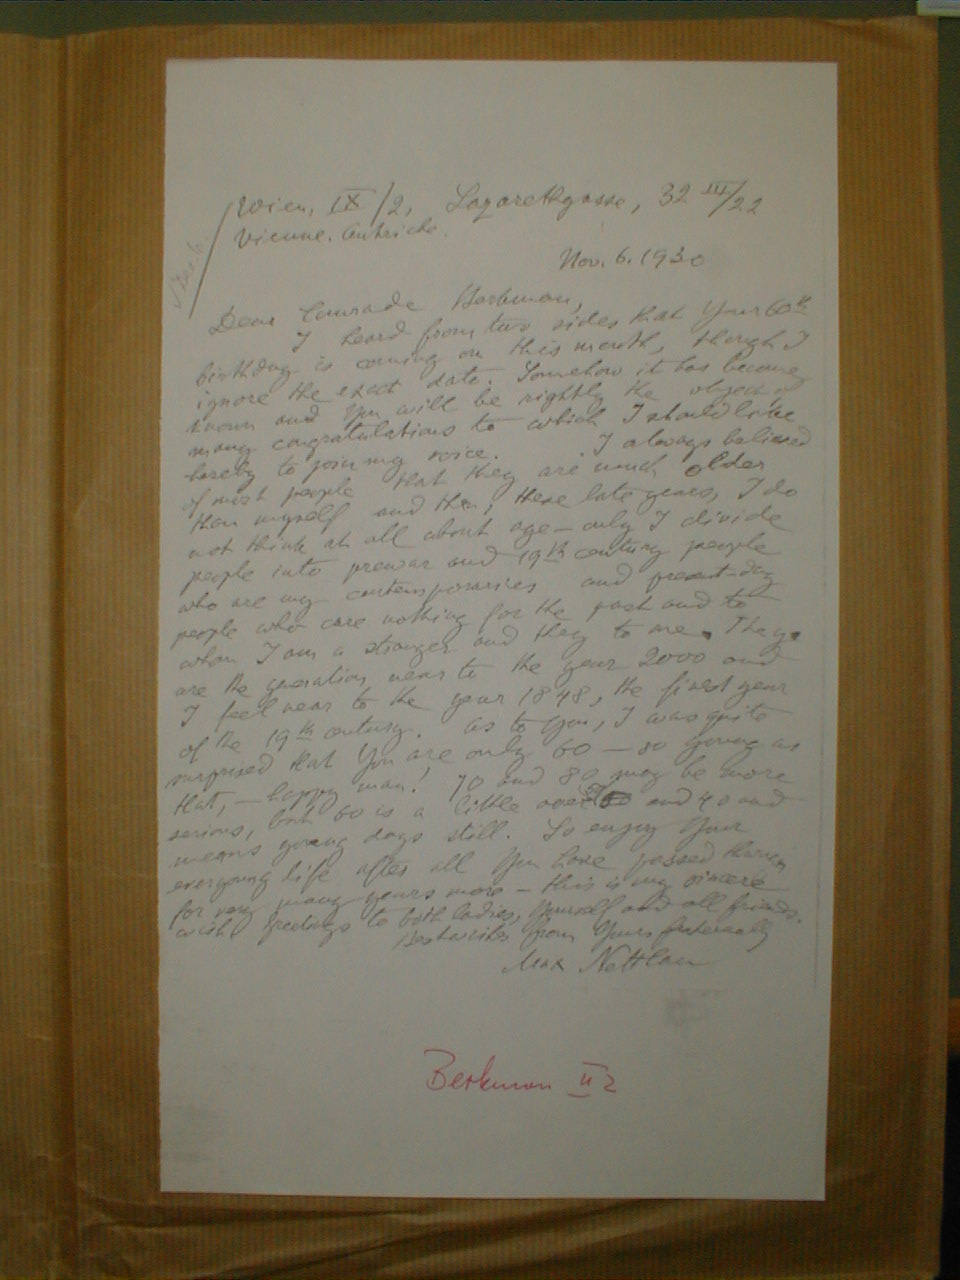 Wien, IX/2, Lazarethgasse, 32 III/22
Vienne. Autriche.
Nov. 6. 1930
Dear Comrade Berkman,
I heard from two sides that Your 60th
birthday is coming on this month, though I
ignore the exact date. Somehow it has become
known and You will be rightly the object of
many congratulations to which I should like
hereby to join my voice. I always believed
of most people that they are much older
than myself and then, these late years, I do
not think at all about age – only I divide
people into prewar and 19th century people
who are my contemporaries and present-day
people who care nothing for the past and to
whom I am a stranger and they to me. They
are the generation near to the year 2000 and
I feel near to the year 1848, the finest year
of the 19th century. As to You, I was quite
surprised that You are only 60 – so young as
that, – happy man! 70 and 80 may be more
serious, but 60 is a little over 50 and 40 and
means young days still. So enjoy Your
everyoung life after all You have passed through
for very many years more – this is my sincere
wish. Greetings to both ladies, Yourself and all friends.
Best wishes from Yours fraternally
Max Nettlau
Berkman II 2